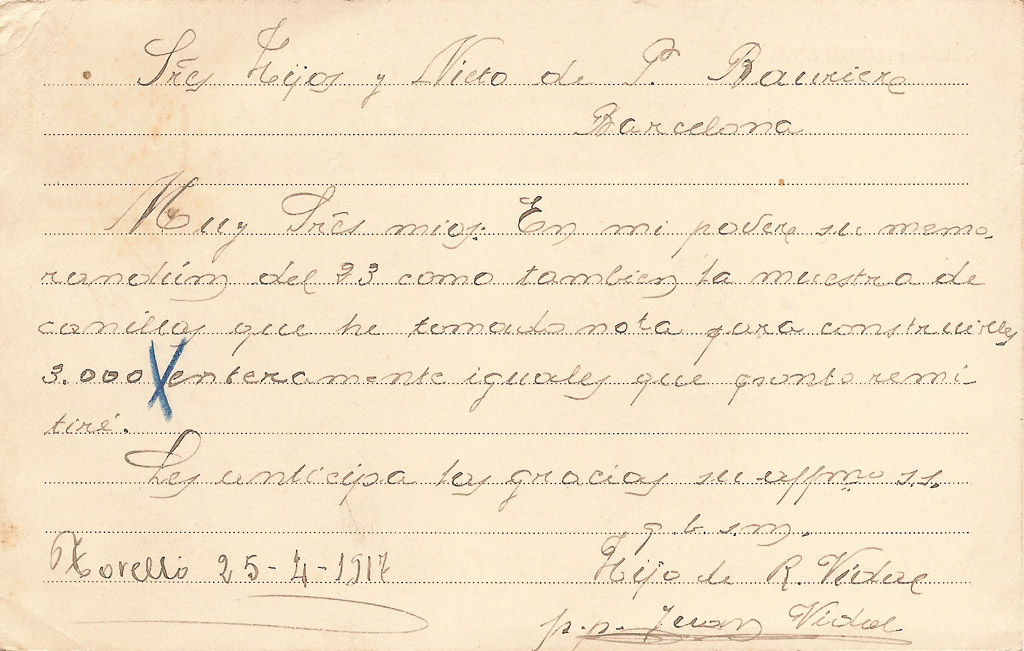 Sres Hijos y Nieto de P. Bauriere
Barcelona
Muy Sres mios: En mi podere su memo-
randúm del 23 como tambien la muestra de
canillas que he tomado nota para construirles
3.000 enteramente iguales que pronto remi-
tiré.
Les anticipa las gracias su affmo s.s.
q. b. s. m.
Torelló 25-4-1917
Hijo de R. Vidal
p.p. Juan Vidal